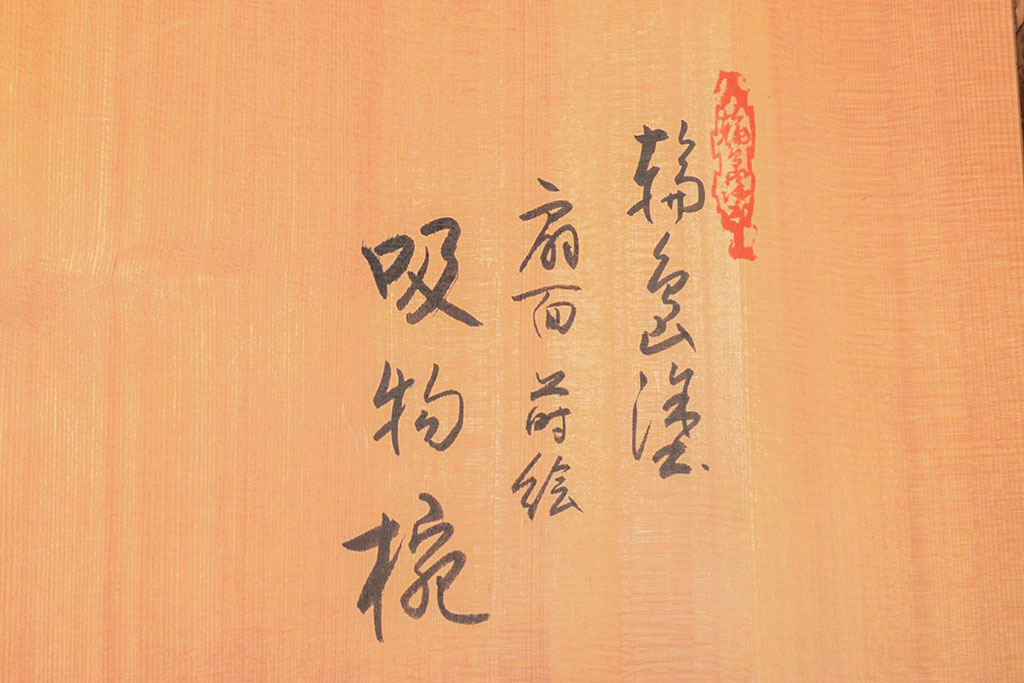 輪島塗
扇面蒔絵
吸物椀